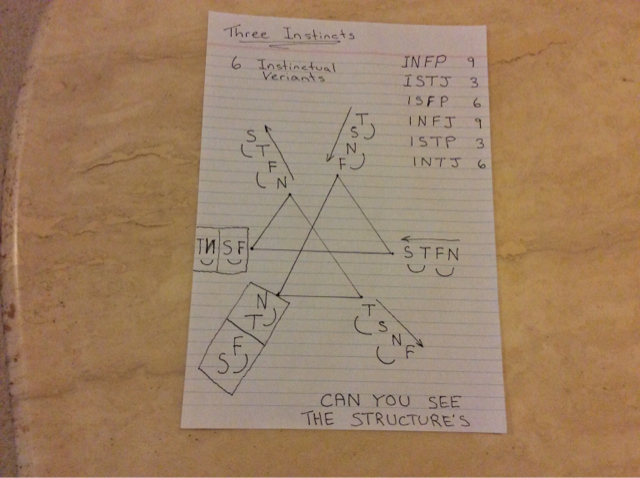 Three Instinets
6 Instinctual
Veriants
INFP 9
ISTJ 3
ISFP 6
INFJ 9
ISTP 3
INTJ 6
S
T
F
N
T
S
N
F
TN SF
STFN
N
T
F
S
T
S
N
F
CAN YOU SEE
THE STRUCTURE'S